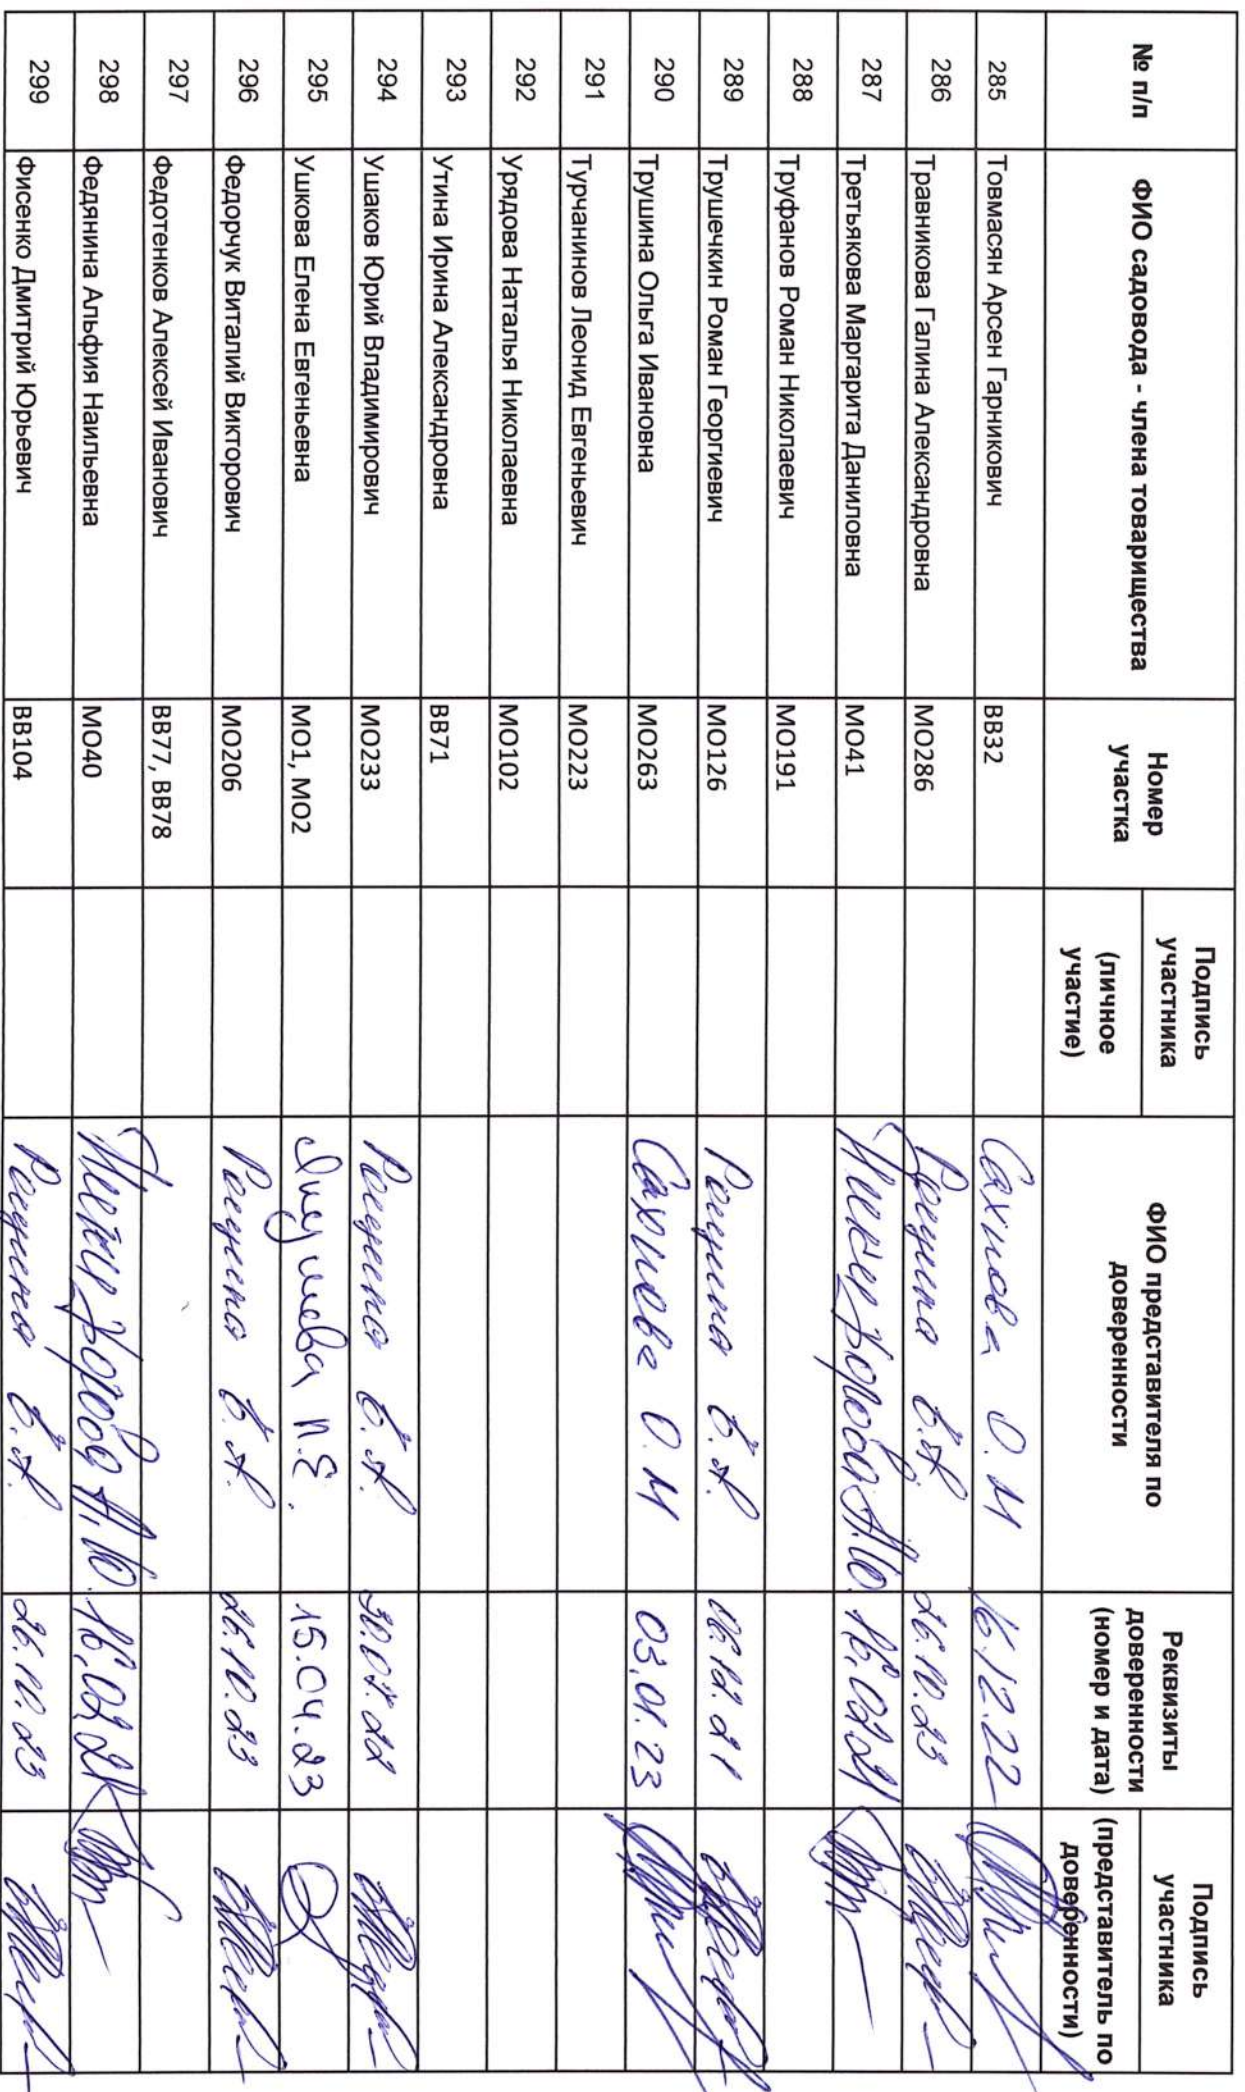 № п/п
ФИО садовода - члена товарищества
Номер участка
Подпись участника
(личное участие)
ФИО представителя по доверенности
Реквизиты доверенности (номер и дата)
Подпись участника
(представитель по доверенности)
285 Товмасян Арсен Гарникович ВВ32 О.И 16.12.22
286 Травникова Галина Александровна МО286 26.10.23
287 Третьякова Маргарита Даниловна МО41
288 Труфанов Роман Николаевич МО191
289 Трушечкин Роман Георгиевич МО126
290 Трушина Ольга Ивановна МО263 О.И 03.01.23
291 Турчанинов Леонид Евгеньевич МО223
292 Урядова Наталья Николаевна МО102
293 Утина Ирина Александровна ВВ71
294 Ушаков Юрий Владимирович МО233
295 Ушкова Елена Евгеньевна МО1, МО2 15.04.23
296 Федорчук Виталий Викторович МО206 26.10.23
297 Федотенков Алексей Иванович ВВ77, ВВ78
298 Федянина Альфия Наильевна МО40
299 Фисенко Дмитрий Юрьевич ВВ104 26.10.23